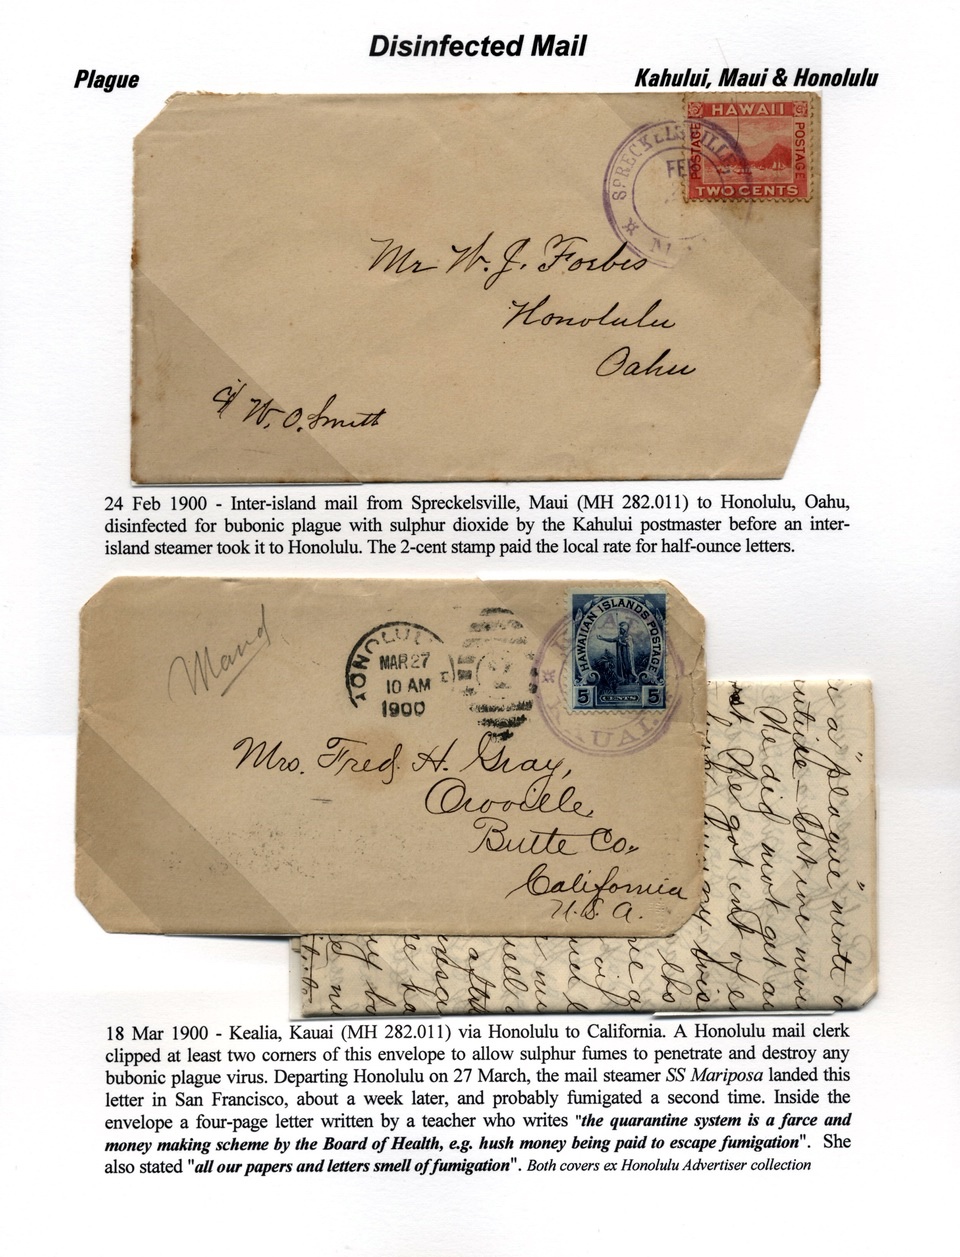 Disinfected Mail
Plague
Kahului, Maui & Honolulu
HAWAII
POSTAGE
POSTAGE
TWO CENTS
SPRECKELSVILLE
FEB
Mr W. J. Forbes
Honolulu
Oahu
c/ W. O. Smith
24 Feb 1900 - Inter-island mail from Spreckelsville, Maui (MH 282.011) to Honolulu, Oahu,
disinfected for bubonic plague with sulphur dioxide by the Kahului postmaster before an inter-
island steamer took it to Honolulu. The 2-cent stamp paid the local rate for half-ounce letters.
HAWAIIAN ISLANDS POSTAGE
5 CENTS 5
KAUAI
HONOLULU
MAR 27
10 AM
1900
Mrs. Fred. H. Gray,
Oroville,
Butte Co.,
California
U.S.A.
a "plague" note
outside - but
He did not get
he got out of
18 Mar 1900 - Kealia, Kauai (MH 282.011) via Honolulu to California. A Honolulu mail clerk
clipped at least two corners of this envelope to allow sulphur fumes to penetrate and destroy any
bubonic plague virus. Departing Honolulu on 27 March, the mail steamer SS Mariposa landed this
letter in San Francisco, about a week later, and probably fumigated a second time. Inside the
envelope a four-page letter written by a teacher who writes "the quarantine system is a farce and
money making scheme by the Board of Health, e.g. hush money being paid to escape fumigation". She
also stated "all our papers and letters smell of fumigation". Both covers ex Honolulu Advertiser collection